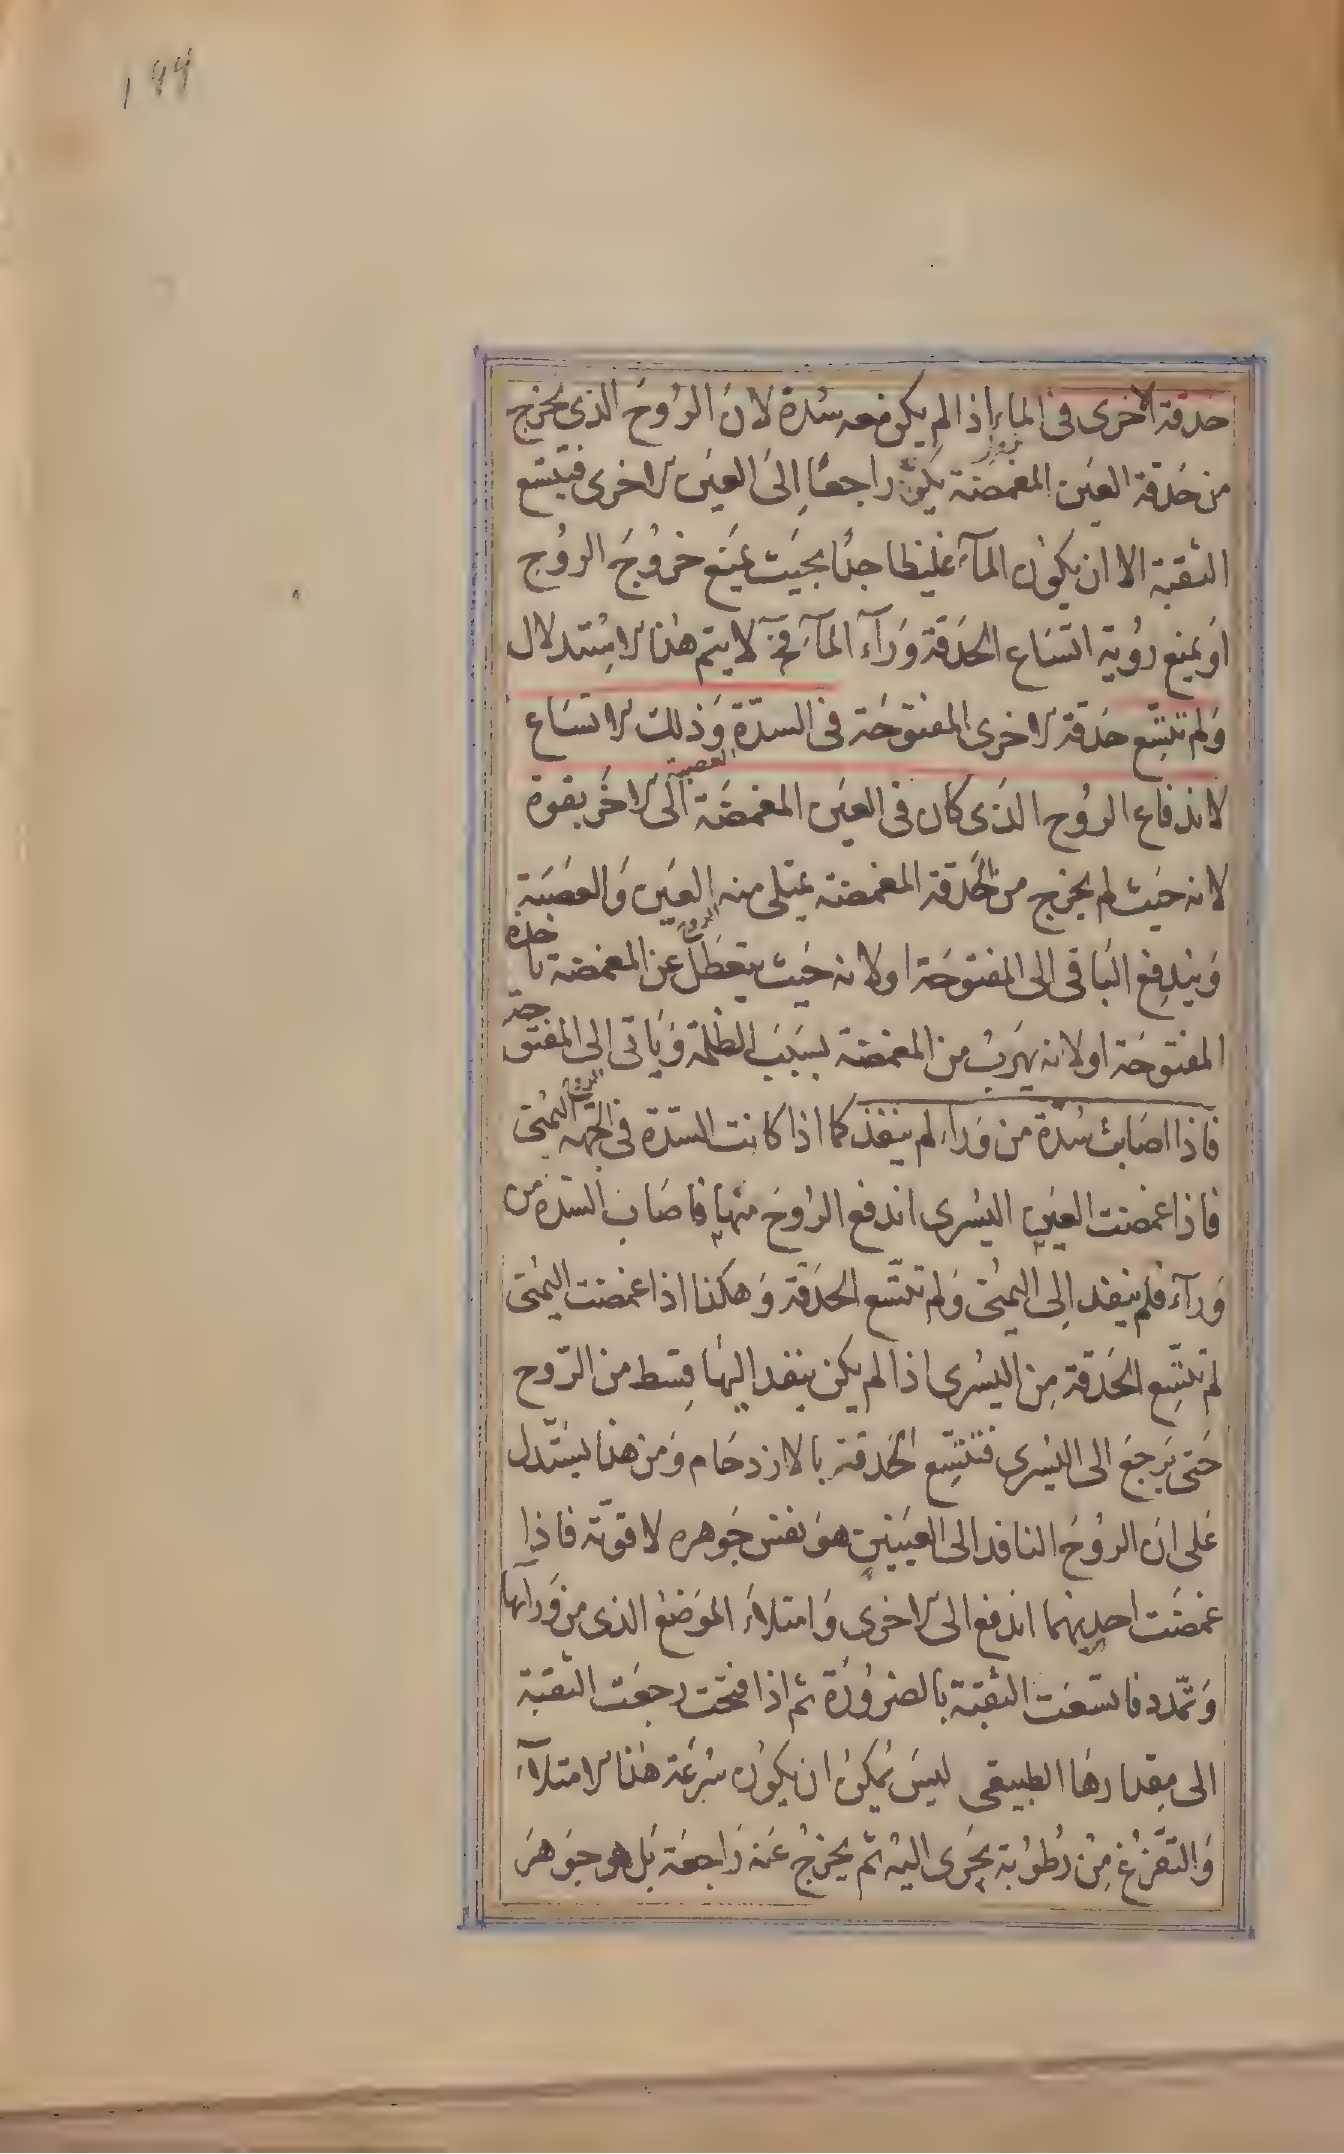 ۱۹۹
حدقة الاخرى فى الماء اذا لم يكن معه سدة لان الروح الذى يخرج
من حدقة العين المغمضة يكون راجعا الى العين الاخرى فيتسع
الثقبة الا ان يكون المآء غليظا جدا بحيث يمنع خروج الروح
او يمنع رؤية اتساع الحدقة ورآء المآء فح لا يتم هذا الاستدلال
ولم تتسّع حدقة الاخرى المفتوحة فى السدّة وذلك الاتساع
لاندفاع الروح الذى كان فى العين المغمضة العصبية الى الاخر بقوة
لانه حيث لم يخرج من الحدقة المغمضة يمتلى منه العين والعصبة
ويندفع الباقى الى المفتوحة او لانه حيث يتعطل الروح عن المغمضة
المفتوحة او لانه يهرب من المغمضة بسبب الظلمة وياتى الى المفتوحة
فاذا اصابت سدّة من وراء لم ينفذ كما اذا كانت السدّة فى الجهة اليمنى
فاذا غمضت العين اليسرى اندفع الروح منها فاصاب السدة من
ورآء فلم ينفد الى اليمنى ولم تتسّع الحدقة وهكذا اذا غمضت اليمنى
لم تتسّع الحدقة من اليسرى اذا لم يكن ينفد اليها قسط من الرّوح
حتى يرجع الى اليسرى فتتسّع الحدقة بالازدحام ومن هذا يستدل
على ان الروح النافد الى العينين هو نفس جوهره لا قوّته فاذا
غمضت احديهما اندفع الى الاخرى وامتلاء الموضع الذى من ورآئها
وتمّدد فاتسعت الثقبة بالضرورة ثم اذا فتحت رجعت الثقبة
الى مقدارها الطبيعى ليس يمكن ان يكون سرعة هذا الامتلاء
والتفرغ من رطوبة يجرى اليه ثم يخرج عنه راجعة بل هو جوهر